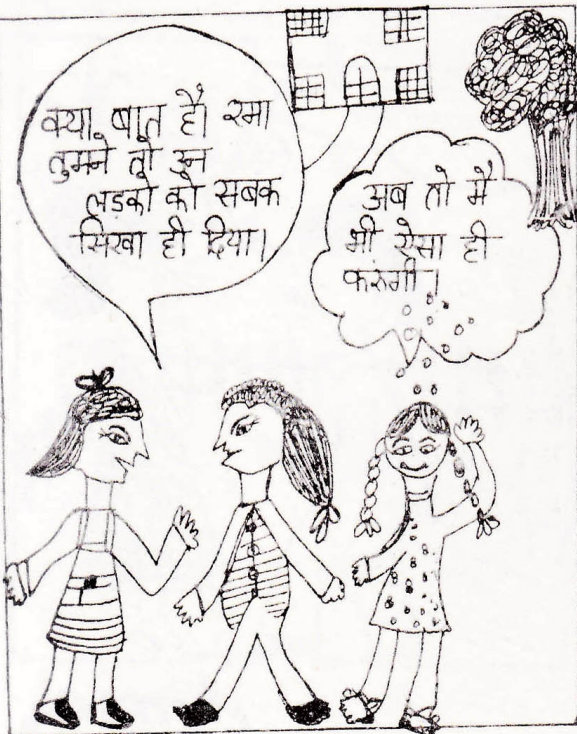 क्या बात है रमा
तुमने तो उन
लड़को को सबक
सिखा ही दिया।
अब तो मैं
भी ऐसा ही
करुंगी।